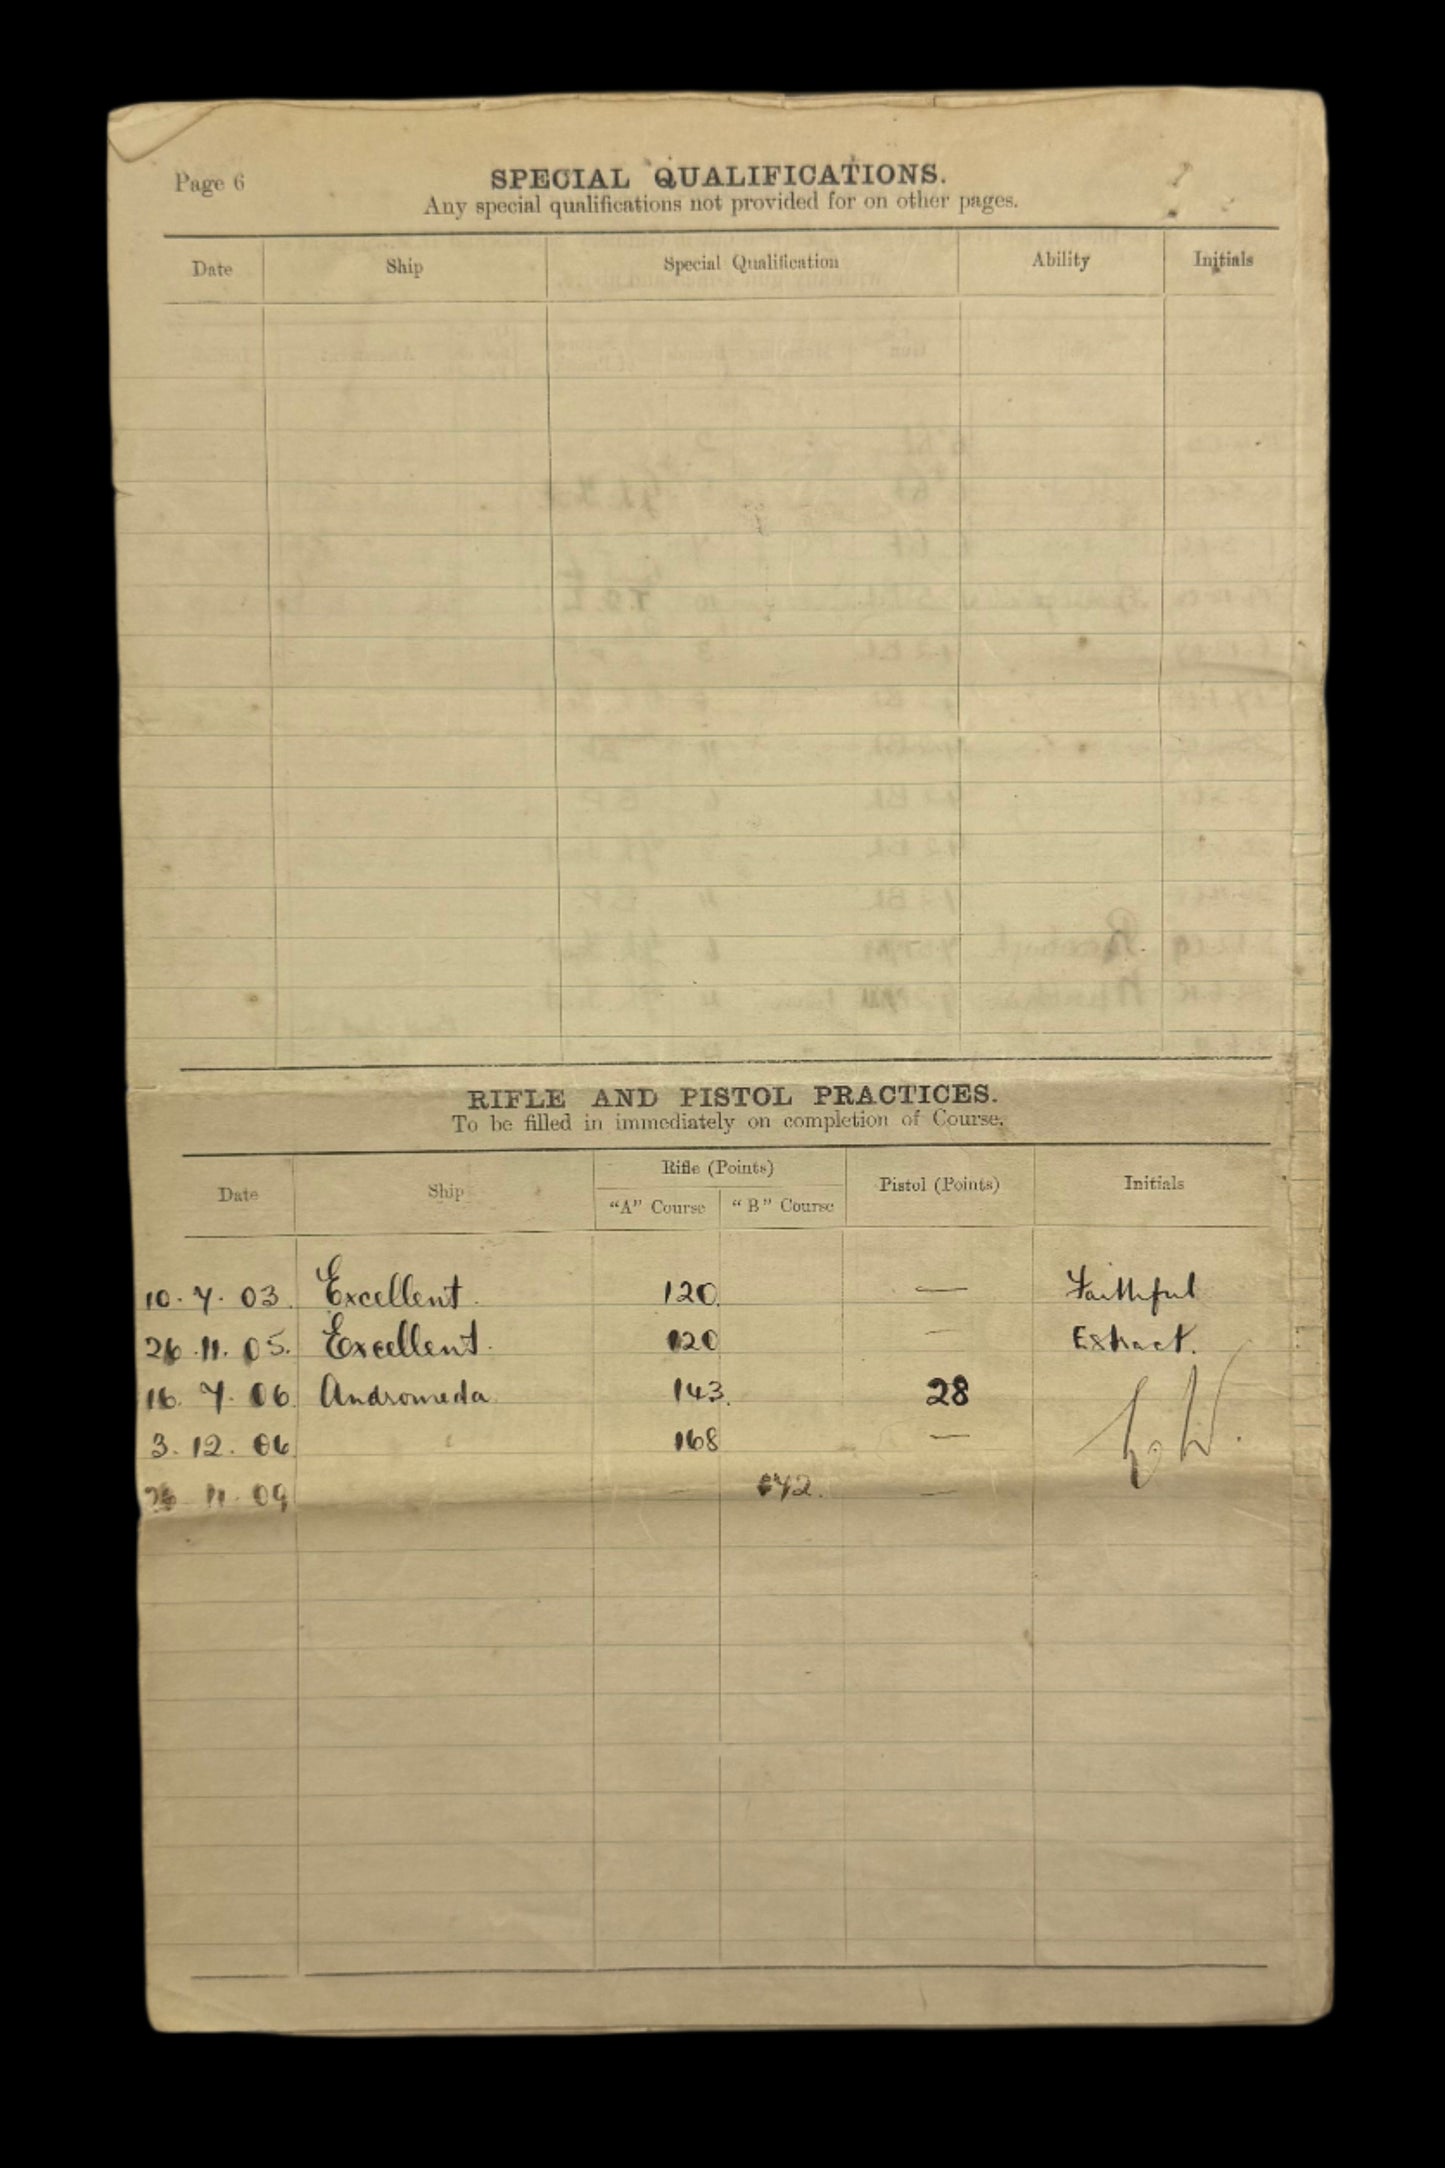 Page 6
SPECIAL QUALIFICATIONS.
Any special qualifications not provided for on other pages.
Date Ship Special Qualification Ability Initials
RIFLE AND PISTOL PRACTICES.
To be filled in immediately on completion of Course.
Date Ship Rifle (Points) Pistol (Points) Initials
"A" Course "B" Course
10. 7. 03. Excellent. 120. — Faithful
26. 11. 05. Excellent. 120 — Extract.
16. 7. 06. Andromeda 143. 28
3. 12. 06. 168 —
11. 09 — —